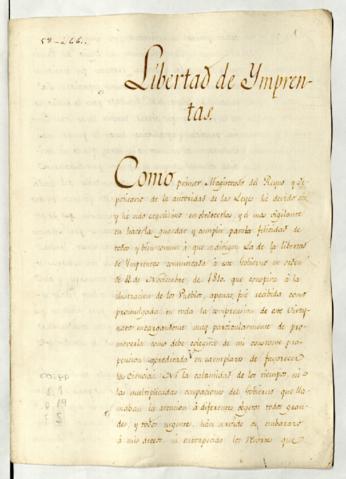 Libertad de Ympren-
tas.
Como primer Magistrado del Reyno y De-
positario de la autoridad de las Leyes he devido
y he sido en obedecerlas, y el mas vigilante
en hacerlas guardar y cumplir para la felicidad de
todos y bien comun á que La de la libertad
de Ymprentas comunicada á este Gobierno en orden
de 12 de Noviembre de 1810. que conspira á la
ilustracion de los Pueblos, apenas fue recibida como
promulgada en toda la comprension de este Virrey-
nato encargandome muy particularmente de pro-
moverla como debe de mi constante pro-
pension acreditada en de favorecer
las Ciencias. Ni la calamidad de los tiempos, ni
las multiplicadas ocupaciones del Gobierno que lla-
maban la atencion á diferentes objetos todos gran-
des, y todos urgentes, han servido de embarazo
á mis deseos, ni los que